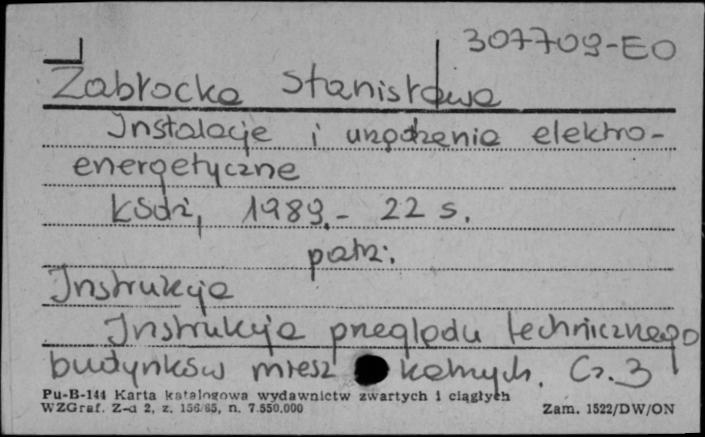 307709-EO
Zabłocka Stanisława
Instalacje i urządzenia elektro-
energetyczne
Łódź, 1989.- 22 s.
patrz:
Instrukcja
Instrukcja przeglądu technicznego
budynków miesz kalnych. Cz. 3
Pu-B-144 Karta katalogowa wydawnictw zwartych i ciągłych
WZGraf. Z-d 2, z. 156/85, n. 7.550.000 Zam. 1522/DW/ON